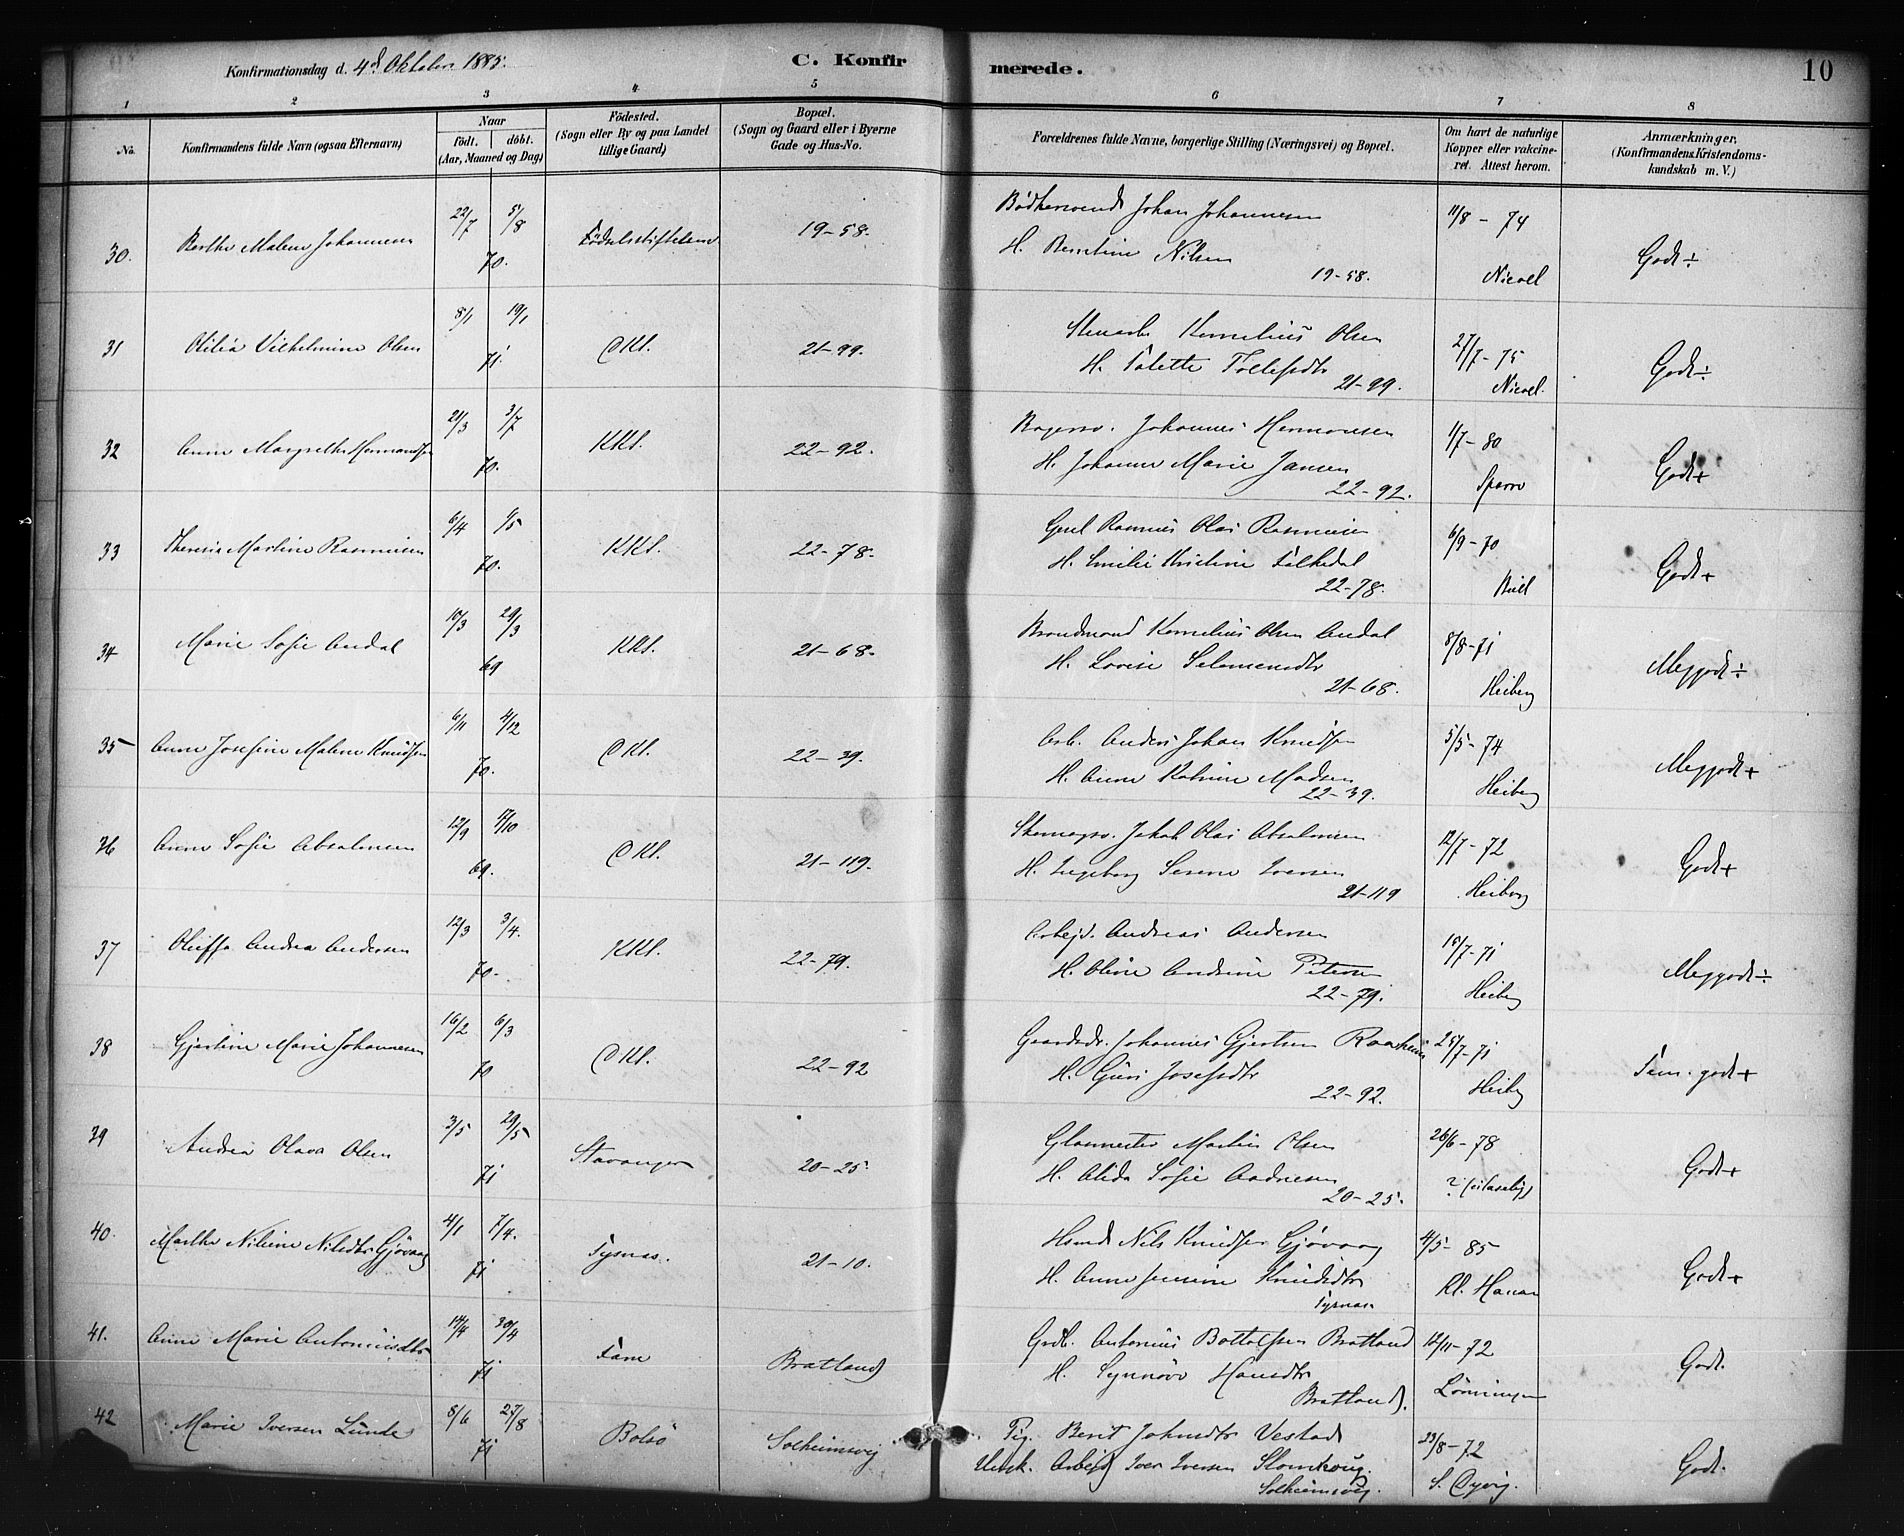 Konfirmationsdag d. 4de Oktober 1885.
C. Konfirmerede.
10
1 2 3 4 5 6 7 8
No.
Konfirmandens fulde Navn (ogsaa Efternavn)
Naar
födt. döbt.
(Aar, Maaned og Dag)
Födested.
(Sogn eller By og paa Landet
tillige Gaard)
Bopæl.
(Sogn og Gaard eller i Byerne
Gade og Hus-No.
Forældrenes fulde Navne, borgerlige Stilling (Næringsvei) og Bopæl.
Om havt de naturlige
Kopper eller vakcine-
ret. Attest herom.
Anmærkninger,
(Konfirmandens Kristendoms-
kundskab m. V.)
30. Berthe Malene Johannesen 22/7 5/8 70. Födselsstiftelsen 19-58. Bödkersvend Johan Johannesen 11/8 - 74 Godt ÷
H. Berntine Nilsen 19-58. Nicol
31 Otilia Vilhelmine Olsen 8/1 19/1 71. DKl. 21-99. Kornelius Olsen 27/7 - 75 Godt ÷
H. Talette Tollefsdtr 21-99. Nicol.
32 Anne Margrethe Hermansen 21/3 3/7 70. KKl. 22-92. Bagersv. Johannes Hermansen 1/7 - 80 Godt +
H. Johanne Marie Jansen 22-92. Sparre
33 Theresia Martine Rasmusen 6/4 1/5 70. KKl. 22-78. Rasmus Olai Rasmusen 6/9 - 70 Godt +
H. Emilie Kristine Falkedal 22-78.
34 Marie Sofie Andal 10/3 29/3 69 KKl. 21-68. Brandmand Kornelius Olsen Andal 8/8 - 71 Meggodt ÷
H. Lovise Salomonsdtr 21-68. Heiberg
35 Anne Josefine Malene Knudsen 6/11 4/12 70. DKl. 22-39. Arb. Anders Johan Knudsen 5/5 - 74 Meggodt +
H. Anne Katrine Madsen 22-39. Heiberg
36 Anne Sofie Absalonsen 12/9 17/10 69. DKl. 21-119. Jakob Olai Absalonsen 12/7 - 72 Godt +
H. Ingeborg Serene Iversen 21-119 Heiberg
37 Oluffa Andrea Andersen 12/3 3/4. 70. KKl. 22-79. Arbejd. Andreas Andersen 15/7 - 71 Meggodt ÷
H. Oline Andrine Petersen 22-79. Heiberg
38 Gjertine Marie Johannesen 16/2 6/3 70 DKl. 22-92 Johannes Gjertsen Raaheim 25/7 - 71 Tem. godt +
H. Guri Josefsdtr 22-92. Heiberg
39 Andrea Olava Olsen 3/5 29/5 71 Stavanger 20-25. Glasmester Martin Olsen 26/6 - 78 Godt +
H. Alida Sofie Andriesen 20-25. ? (ulæselig)
40. Marthe Nilsine Nilsdtr Gjövaag 4/1 7/4. 71 Tysnæs. 21-10. Husmd Nils Knudsen Gjövaag 4/5 - 85 Godt +
H. Anne Jensine Knudsdtr Tysnæs Kl. Hanan
41. Anne Marie Antoniusdtr 14/4 30/4 71 Fane Bratland Grdb. Antonius Bottolfsen Bratland 12/11 - 72 Godt.
H. Synnöve Hansdtr Bratland. Lönningen
42 Marie Iversen Lunde 8/6 27/8 71 Bolsö Solheimsvej Pig. Berit Johnsdtr Vestad 23/8 - 72 Godt.
Arbejd Iver Iversen Solheimsvej. S. Dyvig.